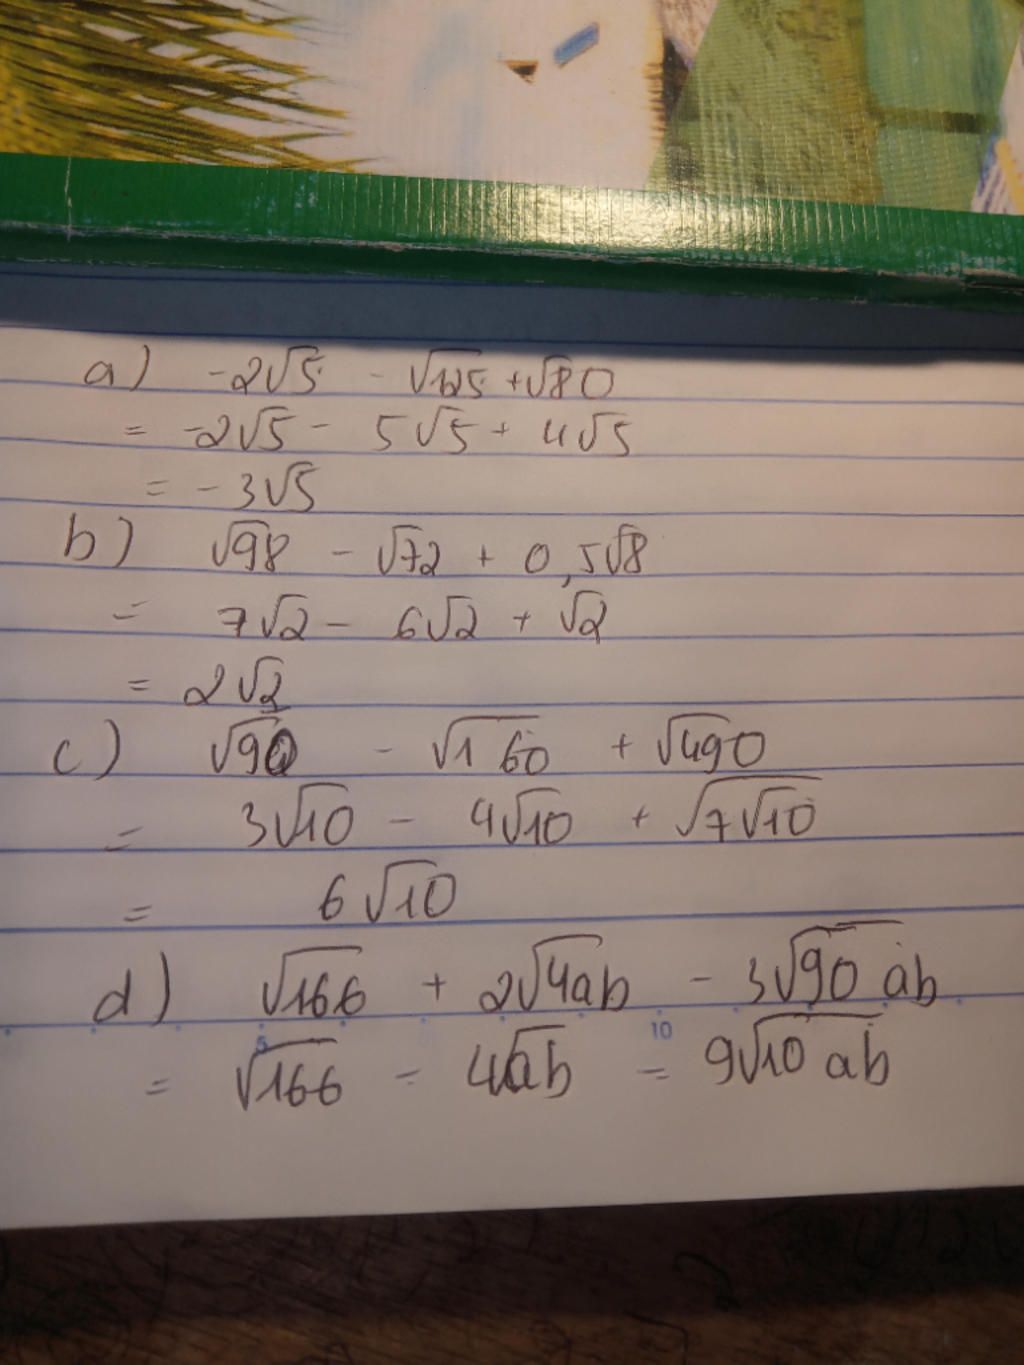 a) -2√5 - √125 + √80
= -2√5 - 5√5 + 4√5
= - 3√5
b) √98 - √72 + 0,5√8
= 7√2 - 6√2 + √2
= 2√2
c) √90 - √160 + √490
= 3√10 - 4√10 + √7√10
= 6√10
d) √166 + 2√4ab - 3√90 ab
5 10
= √166 - 4√ab - 9√10 ab